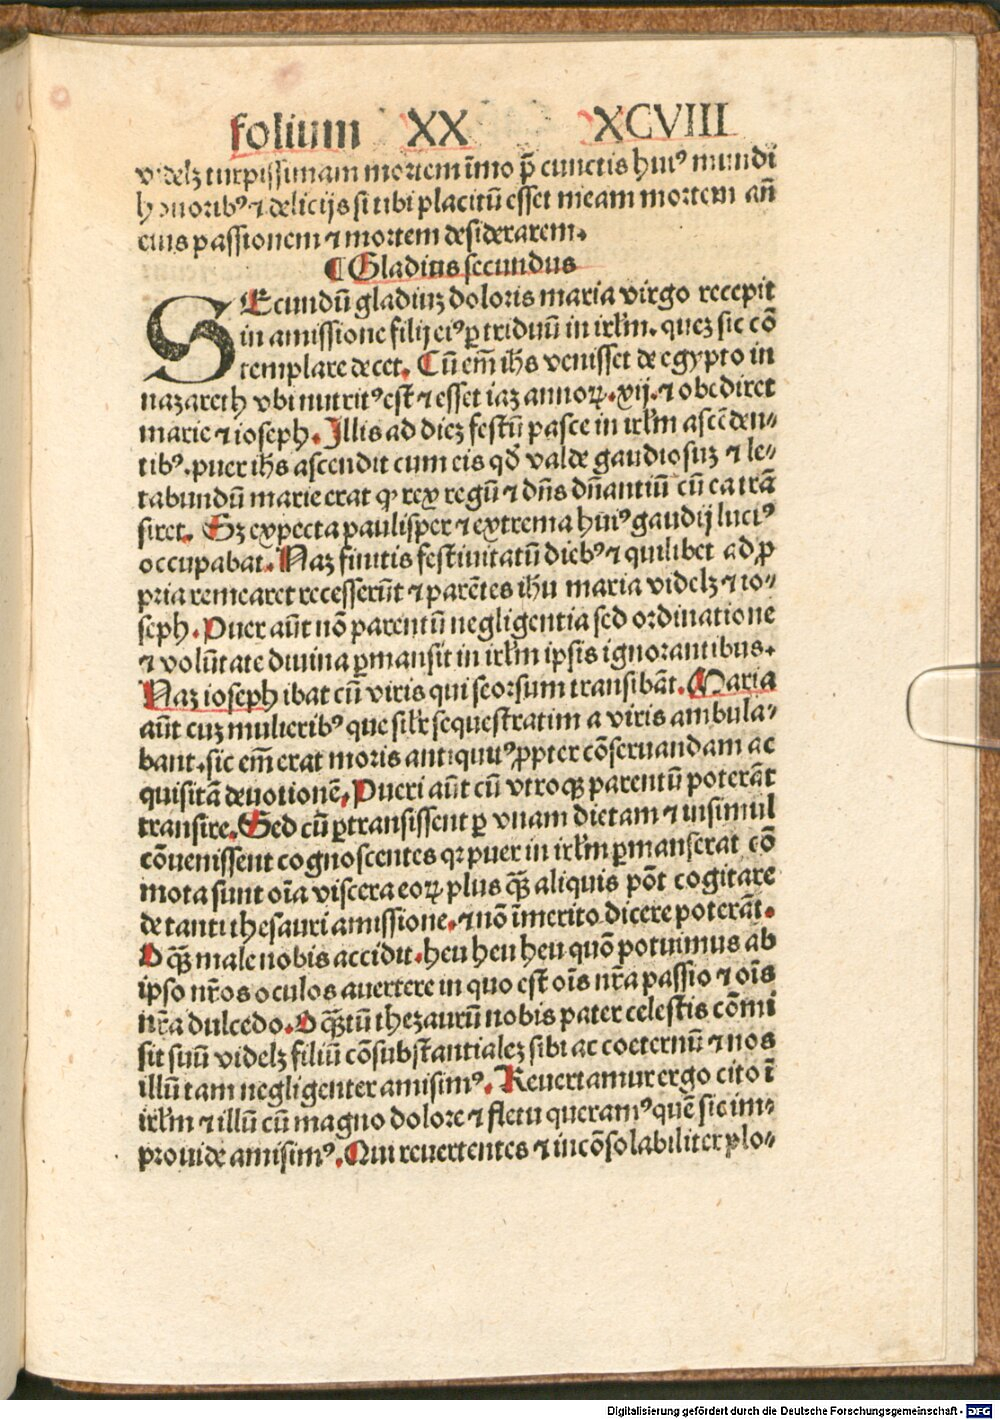 folium XX XCVIII
videlꝫ turpissimam mortem īmo p̄ cunctis huiꝰ mundi
honoribꝰ ⁊ delicijs si tibi placitū esset meam mortem an̄
eius passionem ⁊ mortem desiderarem.
¶ Gladius secundus
SEcundū gladiuꝫ doloris maria virgo recepit
in amissione filij eiꝰ ꝑ triduū in irłm. queꝫ sic cō
templare decet. Cū em̄ ihs venisset de egypto in
nazareth vbi nutritꝰ est ⁊ esset iaꝫ annoꝝ .xij. ⁊ obediret
marie ⁊ ioseph. Illis ad dieꝫ festū pasce in irłm ascēden⸗
tibꝰ. puer ihs ascendit cum eis qď valde gaudiosuꝫ ⁊ le⸗
tabundū marie erat qꝫ rex regū ⁊ dn̄s dn̄antiū cū ea trā
siret. Sꝫ expecta paulisper ⁊ extrema huiꝰ gaudij luctꝰ
occupabat. Naꝫ finitis festiuitatū diebꝰ ⁊ quilibet ad ꝓ
pria remearet recesserūt ⁊ parētes ihu maria videlꝫ ⁊ io⸗
seph. Puer aūt nō parentū negligentia sed ordinatione
⁊ volūtate diuina ꝑmansit in irłm ipsis ignorantibus.
Naꝫ ioseph ibat cū viris qui seorsum transibāt. Maria
aūt cuꝫ mulieribꝰ que silr̄ sequestratim a viris ambula⸗
bant. sic em̄ erat moris antiquitꝰ ꝓpter cōseruandam ac
quisitā deuotionē. Pueri aūt cū vtroqꝫ parentū poterāt
transire. Sed cū ꝑtransissent ꝑ vnam dietam ⁊ insimul
cōuenissent cognoscentes qꝛ puer in irłm ꝑmanserat cō
mota sunt oīa viscera eoꝝ plus qꝫ̄ aliquis pōt cogitare
de tanti thesauri amissione. ⁊ nō īmerito dicere poterāt.
O qꝫ̄ male nobis accidit. heu heu heu quō potuimus ab
ipso nr̄os oculos auertere in quo est oīs nr̄a passio ⁊ oīs
nr̄a dulcedo. O qꝫ̄tū thezaurū nobis pater celestis cōmi
sit suū videlꝫ filiū cōsubstantialeꝫ sibi ac coeternū ⁊ nos
illū tam negligenter amisimꝰ. Reuertamur ergo cito ī
irłm ⁊ illū cū magno dolore ⁊ fletu queramꝰ quē sic im⸗
prouide amisimꝰ. Qui reuertentes ⁊ incōsolabiliter plo⸗
Digitalisierung gefördert durch die Deutsche Forschungsgemeinschaft - DFG